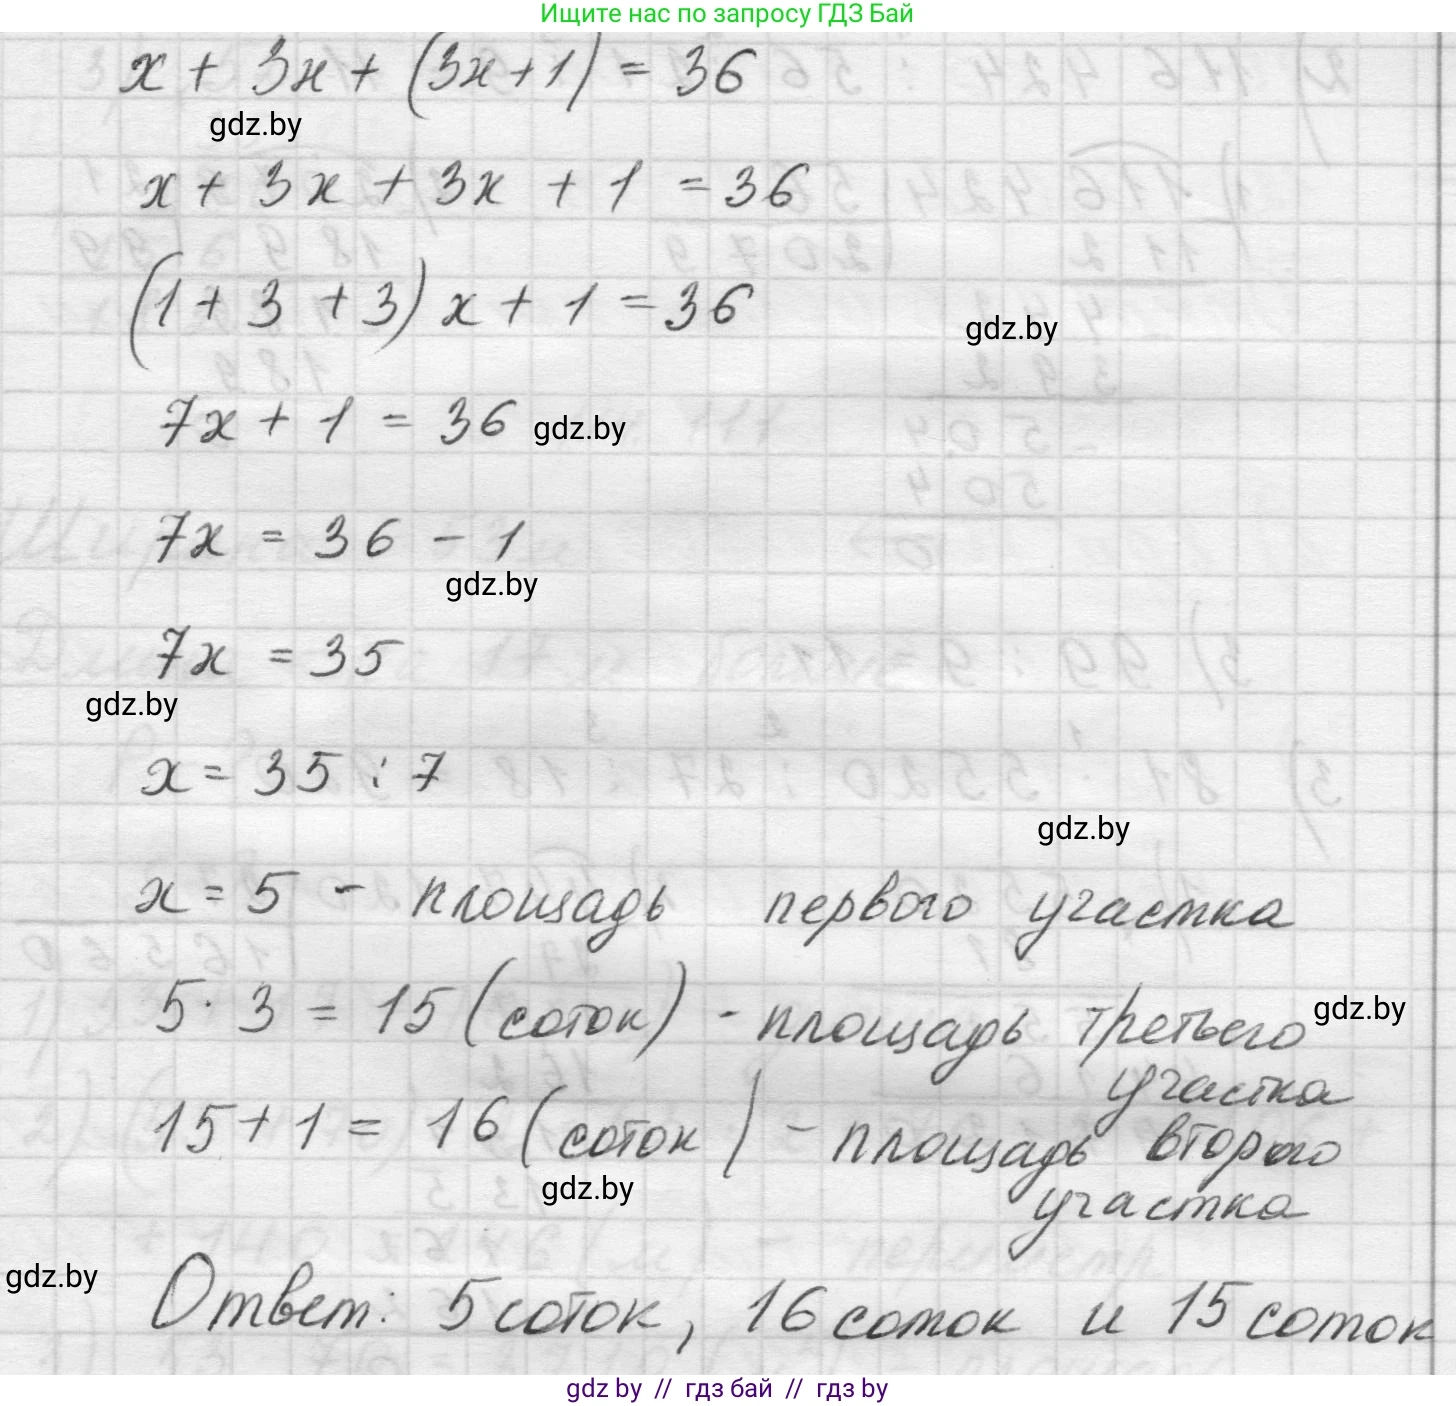 Ищите нас по запросу ГДЗ Бай
x + 3x + (3x + 1) = 36
gdz.by
x + 3x + 3x + 1 = 36
(1 + 3 + 3) x + 1 = 36
gdz.by
7x + 1 = 36 gdz.by
7x = 36 - 1
gdz.by
7x = 35
gdz.by
x = 35 : 7
gdz.by
x = 5 - площадь первого участка
5 · 3 = 15 (соток) - площадь третьего gdz.by
участка
15 + 1 = 16 (соток) - площадь второго
gdz.by
участка
gdz.by
Ответ: 5 соток, 16 соток и 15 соток
gdz by // гдз бай // гдз by